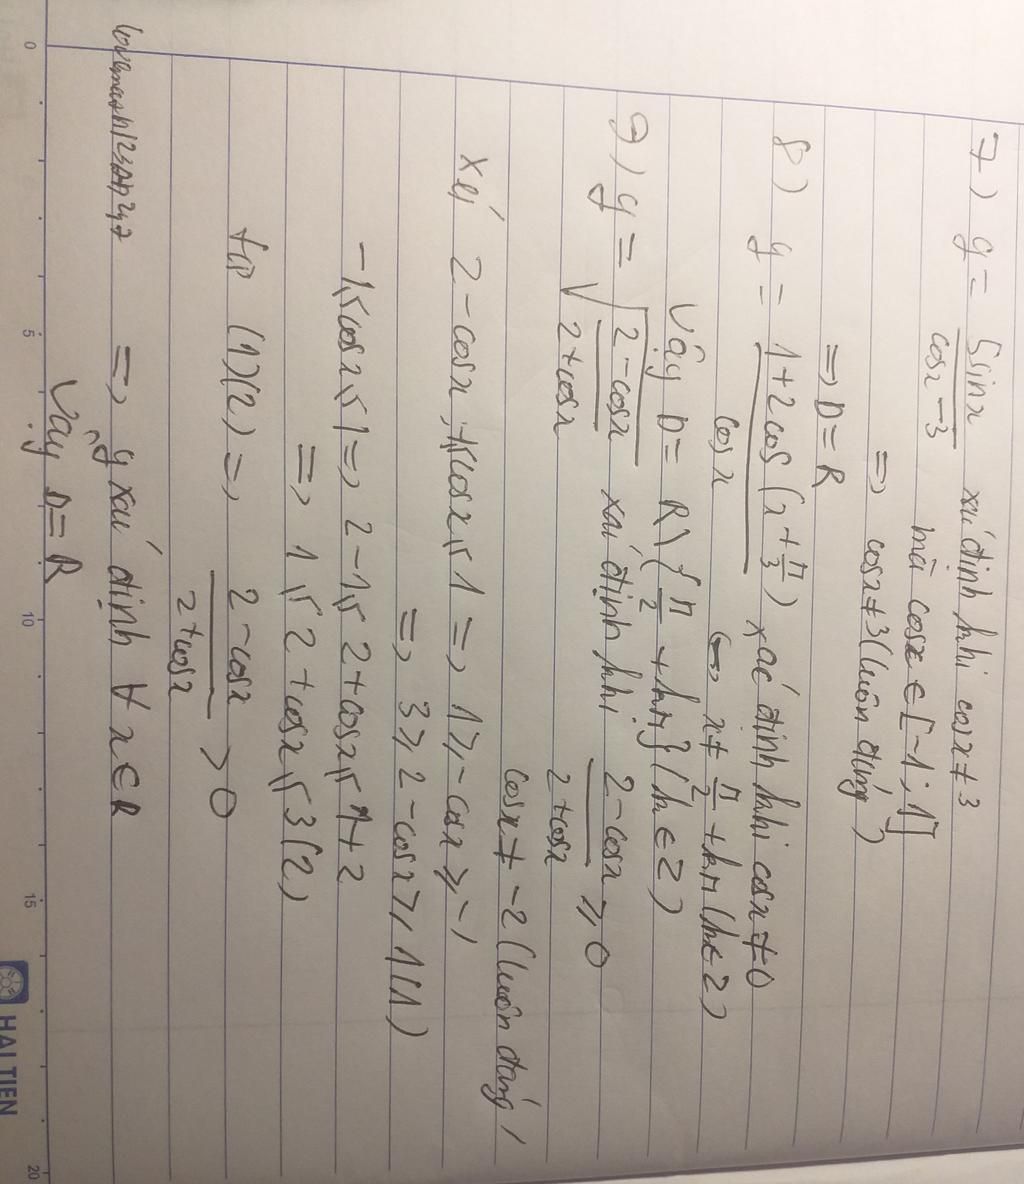 7) y = 5sinx / cosx - 3 xác định khi cosx ≠ 3
mà cosx ∈ [-1; 1]
=> cosx ≠ 3 (luôn đúng)
=> D = R
8) y = 1 + 2cos(x + π/3) / cosx xác định khi cosx ≠ 0
<=> x ≠ π/2 + kπ (k ∈ Z)
Vậy D = R \ {π/2 + kπ} (k ∈ Z)
9) y = √(2 - cosx / 2 + cosx) xác định khi 2 - cosx / 2 + cosx ≥ 0
cosx ≠ -2 (luôn đúng)
Xét 2 - cosx, -1 ≤ cosx ≤ 1 => 1 ≥ -cosx ≥ -1
=> 3 ≥ 2 - cosx ≥ 1 (1)
-1 ≤ cosx ≤ 1 => 2 - 1 ≤ 2 + cosx ≤ 1 + 2
=> 1 ≤ 2 + cosx ≤ 3 (2)
từ (1)(2) => 2 - cosx / 2 + cosx > 0
=> y xác định ∀ x ∈ R
Vậy D = R
0 5 10 15 20
HẢI TIẾN